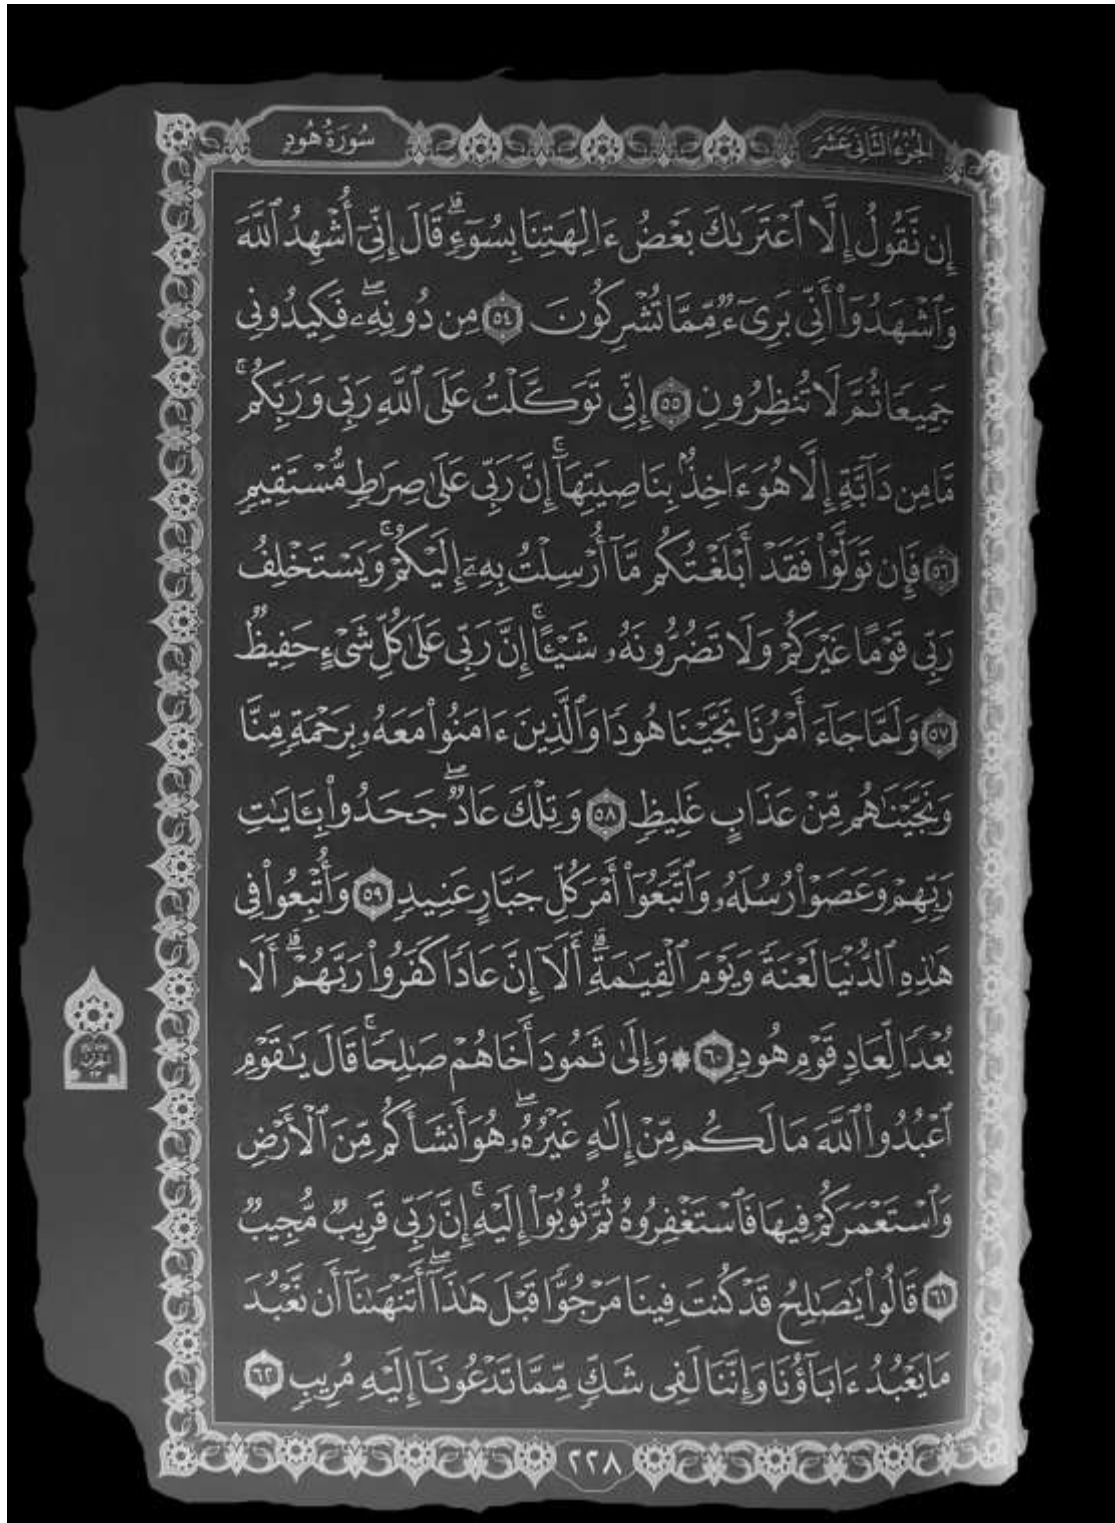 الجزء الثاني عشر
سورة هود
إِن نَّقُولُ إِلَّا ٱعْتَرَىٰكَ بَعْضُ ءَالِهَتِنَا بِسُوٓءٍۗ قَالَ إِنِّىٓ أُشْهِدُ ٱللَّهَ
وَٱشْهَدُوٓا۟ أَنِّى بَرِىٓءٌ مِّمَّا تُشْرِكُونَ ٥٤ مِن دُونِهِۦۖ فَكِيدُونِى
جَمِيعًا ثُمَّ لَا تُنظِرُونِ ٥٥ إِنِّى تَوَكَّلْتُ عَلَى ٱللَّهِ رَبِّى وَرَبِّكُمۚ
مَّا مِن دَآبَّةٍ إِلَّا هُوَ ءَاخِذٌۢ بِنَاصِيَتِهَآۚ إِنَّ رَبِّى عَلَىٰ صِرَٰطٍ مُّسْتَقِيمٍ
٥٦ فَإِن تَوَلَّوْا۟ فَقَدْ أَبْلَغْتُكُم مَّآ أُرْسِلْتُ بِهِۦٓ إِلَيْكُمْۚ وَيَسْتَخْلِفُ
رَبِّى قَوْمًا غَيْرَكُمْ وَلَا تَضُرُّونَهُۥ شَيْـًٔاۚ إِنَّ رَبِّى عَلَىٰ كُلِّ شَىْءٍ حَفِيظٌ
٥٧ وَلَمَّا جَآءَ أَمْرُنَا نَجَّيْنَا هُودًا وَٱلَّذِينَ ءَامَنُوا۟ مَعَهُۥ بِرَحْمَةٍ مِّنَّا
وَنَجَّيْنَٰهُم مِّنْ عَذَابٍ غَلِيظٍ ٥٨ وَتِلْكَ عَادٌۖ جَحَدُوا۟ بِـَٔايَٰتِ
رَبِّهِمْ وَعَصَوْا۟ رُسُلَهُۥ وَٱتَّبَعُوٓا۟ أَمْرَ كُلِّ جَبَّارٍ عَنِيدٍ ٥٩ وَأُتْبِعُوا۟ فِى
هَٰذِهِ ٱلدُّنْيَا لَعْنَةً وَيَوْمَ ٱلْقِيَٰمَةِۗ أَلَآ إِنَّ عَادًا كَفَرُوا۟ رَبَّهُمْۗ أَلَا
بُعْدًا لِّعَادٍ قَوْمِ هُودٍ ٦٠ ۞ وَإِلَىٰ ثَمُودَ أَخَاهُمْ صَٰلِحًاۚ قَالَ يَٰقَوْمِ
ٱعْبُدُوا۟ ٱللَّهَ مَا لَكُم مِّنْ إِلَٰهٍ غَيْرُهُۥۖ هُوَ أَنشَأَكُم مِّنَ ٱلْأَرْضِ
وَٱسْتَعْمَرَكُمْ فِيهَا فَٱسْتَغْفِرُوهُ ثُمَّ تُوبُوٓا۟ إِلَيْهِۚ إِنَّ رَبِّى قَرِيبٌ مُّجِيبٌ
٦١ قَالُوا۟ يَٰصَٰلِحُ قَدْ كُنتَ فِينَا مَرْجُوًّا قَبْلَ هَٰذَآۖ أَتَنْهَىٰنَآ أَن نَّعْبُدَ
مَا يَعْبُدُ ءَابَآؤُنَا وَإِنَّنَا لَفِى شَكٍّ مِّمَّا تَدْعُونَآ إِلَيْهِ مُرِيبٍ ٦٢
٢٢٨